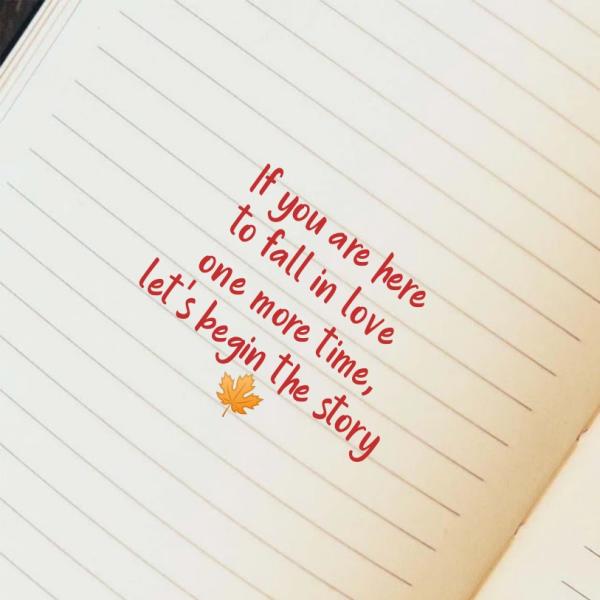 If you are here
to fall in love
one more time,
let's begin the story
🍁